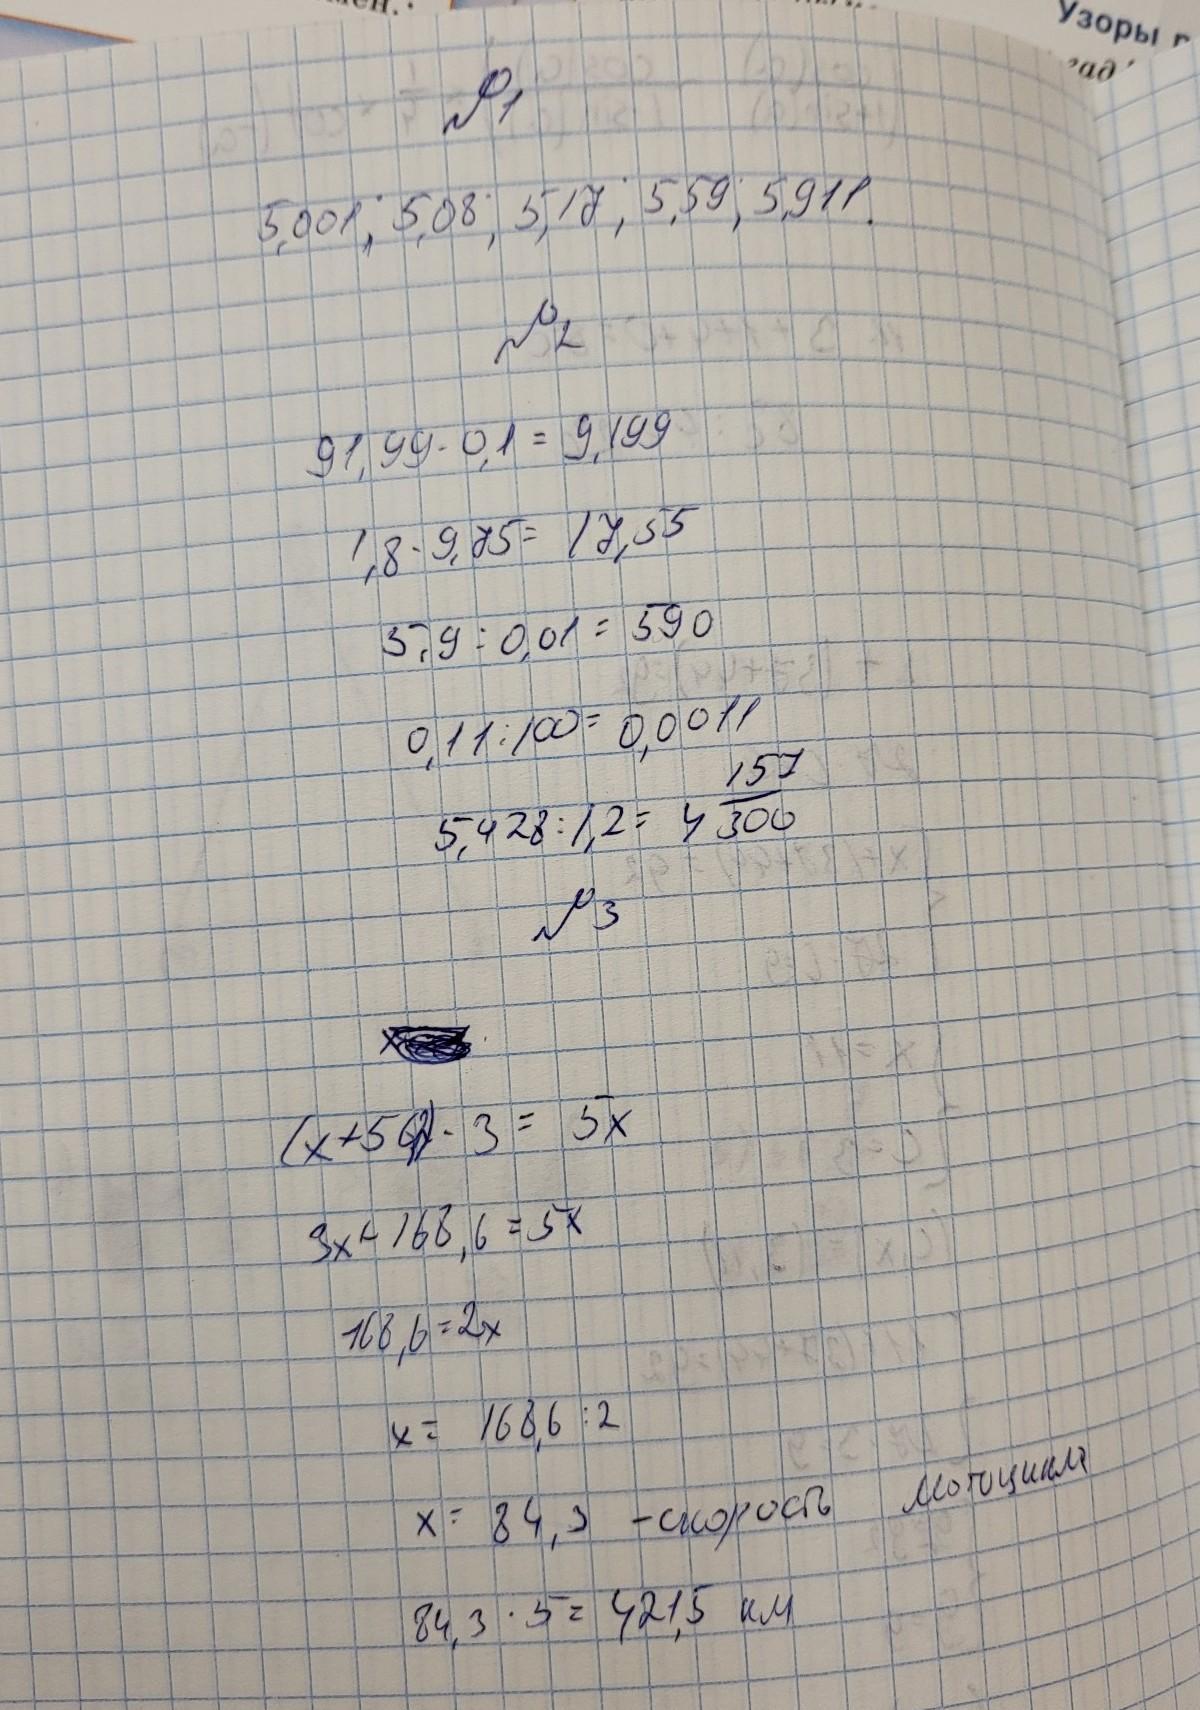 Узоры
№1
5,001; 5,08; 5,17; 5,59; 5,911.
№2
91,99 · 0,1 = 9,199
1,8 · 9,75 = 17,55
5,9 : 0,01 = 590
0,11 : 100 = 0,0011
5,428 : 1,2 = 4 157/300
№3
x
(x + 56,2) · 3 = 5x
3x + 168,6 = 5x
168,6 = 2x
x = 168,6 : 2
x = 84,3 - скорость мотоцикла
84,3 · 5 = 421,5 км